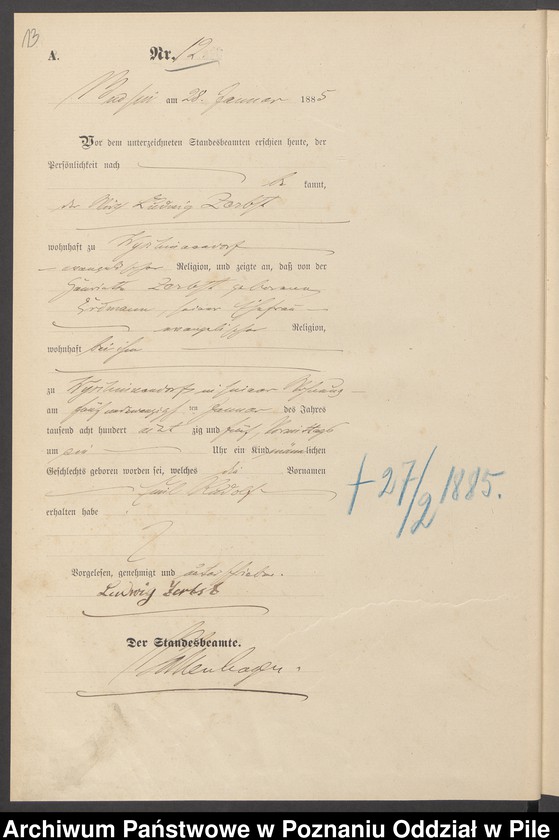 13
A.
Nr. 12
am 28. Januar 1885
Vor dem unterzeichneten Standesbeamten erschien heute, der
Persönlichkeit nach
be kannt,
der Ludwig Zerbst
wohnhaft zu
evangelischer Religion, und zeigte an, daß von der
Zerbst geborenen
Erdmann, seiner Ehefrau
evangelischer Religion,
wohnhaft bei ihm
zu in seiner Wohnung
am fünf und zwanzigsten Januar des Jahres
tausend acht hundert acht zig und fünf, Vormittags
um Uhr ein Kind männlichen
Geschlechts geboren worden sei, welches die Vornamen
Emil Rudolf
erhalten habe
† 27/2 1885.
Vorgelesen, genehmigt und unterschrieben.
Ludwig Zerbst
Der Standesbeamte.
Archiwum Państwowe w Poznaniu Oddział w Pile